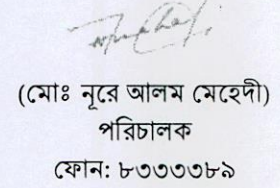 (মোঃ নূরে আলম মেহেদী)
পরিচালক
ফোন: ৮৩৩৩৩৮৯